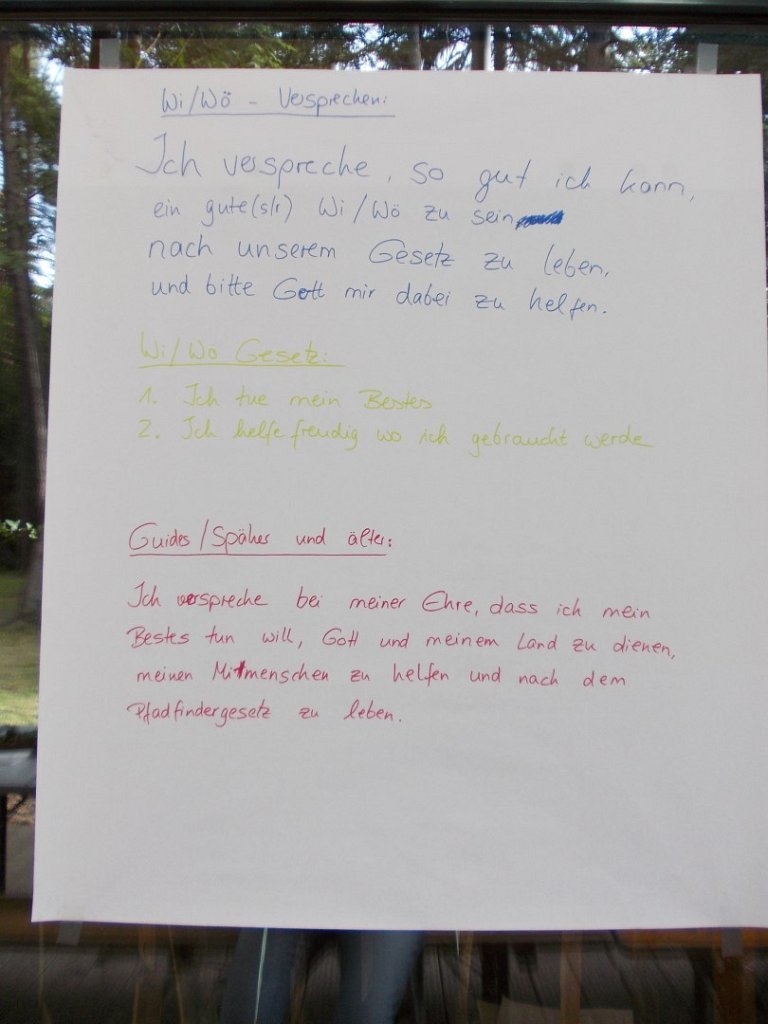 Wi/Wö - Versprechen:
Ich verspreche, so gut ich kann,
ein gute(s/r) Wi/Wö zu sein
nach unserem Gesetz zu leben,
und bitte Gott mir dabei zu helfen.
Wi/Wö Gesetz:
1. Ich tue mein Bestes
2. Ich helfe freudig wo ich gebraucht werde
Guides/Späher und älter:
Ich verspreche bei meiner Ehre, dass ich mein
Bestes tun will, Gott und meinem Land zu dienen,
meinen Mitmenschen zu helfen und nach dem
Pfadfindergesetz zu leben.